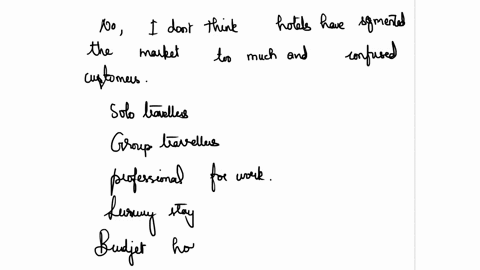 No, I dont think hotels have sgmented
the market too much and confused
customers.
Solo travellers
Group travellers
professional for work.
Luxury stay
Budjet ho